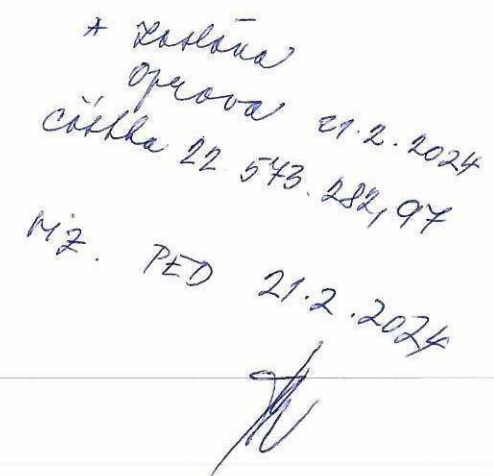 * zaslána
oprava 21.2.2024
částka 22.573.282,97
MZ. PED 21.2.2024